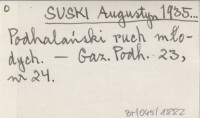 0
SUSKI Augustyn 1935...
Podhalański ruch mło-
dych. — Gaz. Podh. 23,
nr 24.